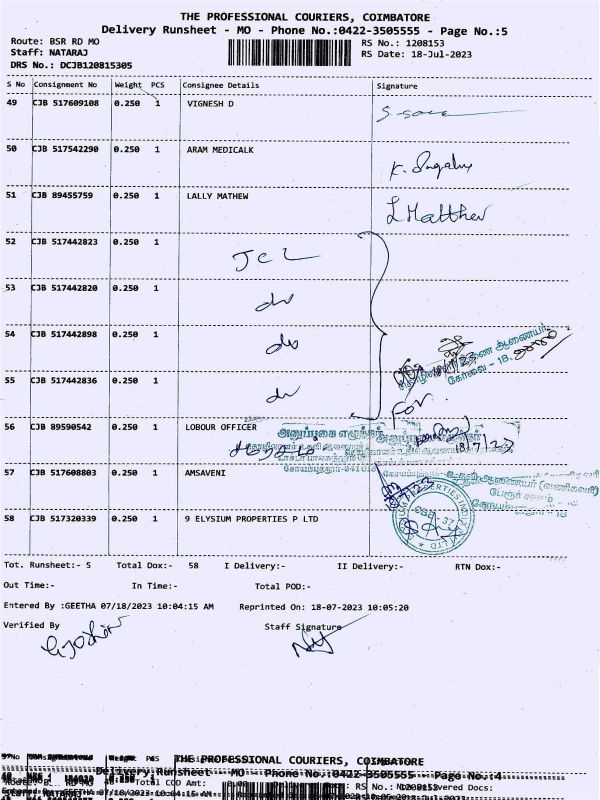 THE PROFESSIONAL COURIERS, COIMBATORE
Delivery Runsheet - MO - Phone No.:0422-3505555 - Page No.:5
Route: BSR RD MO
RS No.: 1208153
Staff: NATARAJ
RS Date: 18-Jul-2023
DRS No.: DCJB120815305
S No Consignment No Weight PCS Consignee Details Signature
49 CJB 517609108 0.250 1 VIGNESH D
50 CJB 517542290 0.250 1 ARAM MEDICALK
51 CJB 89455759 0.250 1 LALLY MATHEW L Matthew
52 CJB 517442823 0.250 1 JCL
53 CJB 517442820 0.250 1 do
54 CJB 517442898 0.250 1 do
55 CJB 517442836 0.250 1 do
கோவை - 18.
For
56 CJB 89590542 0.250 1 LOBOUR OFFICER
18/7/23
57 CJB 517608803 0.250 1 AMSAVENI
58 CJB 517320339 0.250 1 9 ELYSIUM PROPERTIES P LTD
Tot. Runsheet:- 5 Total Dox:- 58 I Delivery:- II Delivery:- RTN Dox:-
Out Time:- In Time:- Total POD:-
Entered By :GEETHA 07/18/2023 10:04:15 AM Reprinted On: 18-07-2023 10:05:20
Verified By Staff Signature
THE PROFESSIONAL COURIERS, COIMBATORE
Delivery Runsheet - MO - Phone No.:0422-3505555 - Page No.:4